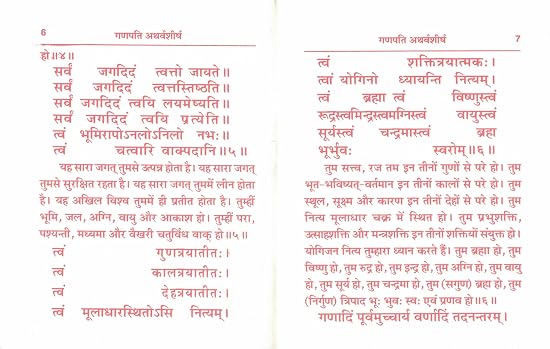 6
गणपति अथर्वशीर्ष
हो॥४॥
सर्वं जगदिदं त्वत्तो जायते॥
सर्वं जगदिदं त्वत्तस्तिष्ठति॥
सर्वं जगदिदं त्वयि लयमेष्यति॥
सर्वं जगदिदं त्वयि प्रत्येति॥
त्वं भूमिरापोऽनलोऽनिलो नभः॥
त्वं चत्वारि वाक्पदानि॥५॥
यह सारा जगत् तुमसे उत्पन्न होता है। यह सारा जगत्
तुमसे सुरक्षित रहता है। यह सारा जगत् तुममें लीन होता
है। यह अखिल विश्व तुममें ही प्रतीत होता है। तुम्हीं
भूमि, जल, अग्नि, वायु और आकाश हो। तुम्हीं परा,
पश्यन्ती, मध्यमा और वैखरी चतुर्विध वाक् हो॥५॥
त्वं गुणत्रयातीतः।
त्वं कालत्रयातीतः।
त्वं देहत्रयातीतः।
त्वं मूलाधारस्थितोऽसि नित्यम्।
गणपति अथर्वशीर्ष
7
त्वं शक्तित्रयात्मकः।
त्वां योगिनो ध्यायन्ति नित्यम्।
त्वं ब्रह्मा त्वं विष्णुस्त्वं
रुद्रस्त्वमिन्द्रस्त्वमग्निस्त्वं वायुस्त्वं
सूर्यस्त्वं चन्द्रमास्त्वं ब्रह्म
भूर्भुवः स्वरोम्॥६॥
तुम सत्त्व, रज तम इन तीनों गुणों से परे हो। तुम
भूत-भविष्यत्-वर्तमान इन तीनों कालों से परे हो। तुम
स्थूल, सूक्ष्म और कारण इन तीनों देहों से परे हो। तुम
नित्य मूलाधार चक्र में स्थित हो। तुम प्रभुशक्ति,
उत्साहशक्ति और मन्त्रशक्ति इन तीनों शक्तियों संयुक्त हो।
योगिजन नित्य तुम्हारा ध्यान करते हैं। तुम ब्रह्मा हो, तुम
विष्णु हो, तुम रुद्र हो, तुम इन्द्र हो, तुम अग्नि हो, तुम वायु
हो, तुम सूर्य हो, तुम चन्द्रमा हो, तुम (सगुण) ब्रह्म हो, तुम
(निर्गुण) त्रिपाद भूः भुवः स्वः एवं प्रणव हो॥६॥
गणादिं पूर्वमुच्चार्य वर्णादिं तदनन्तरम्।